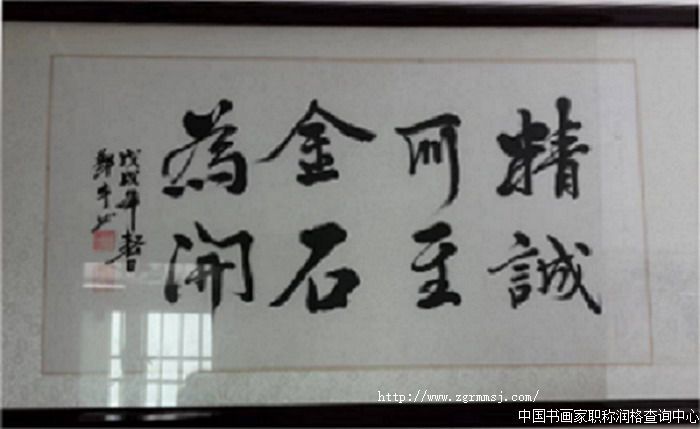 精誠
所至
金石
為開
戊戌年春
http://www.zgrmmsj.com/
中国书画家职称润格查询中心